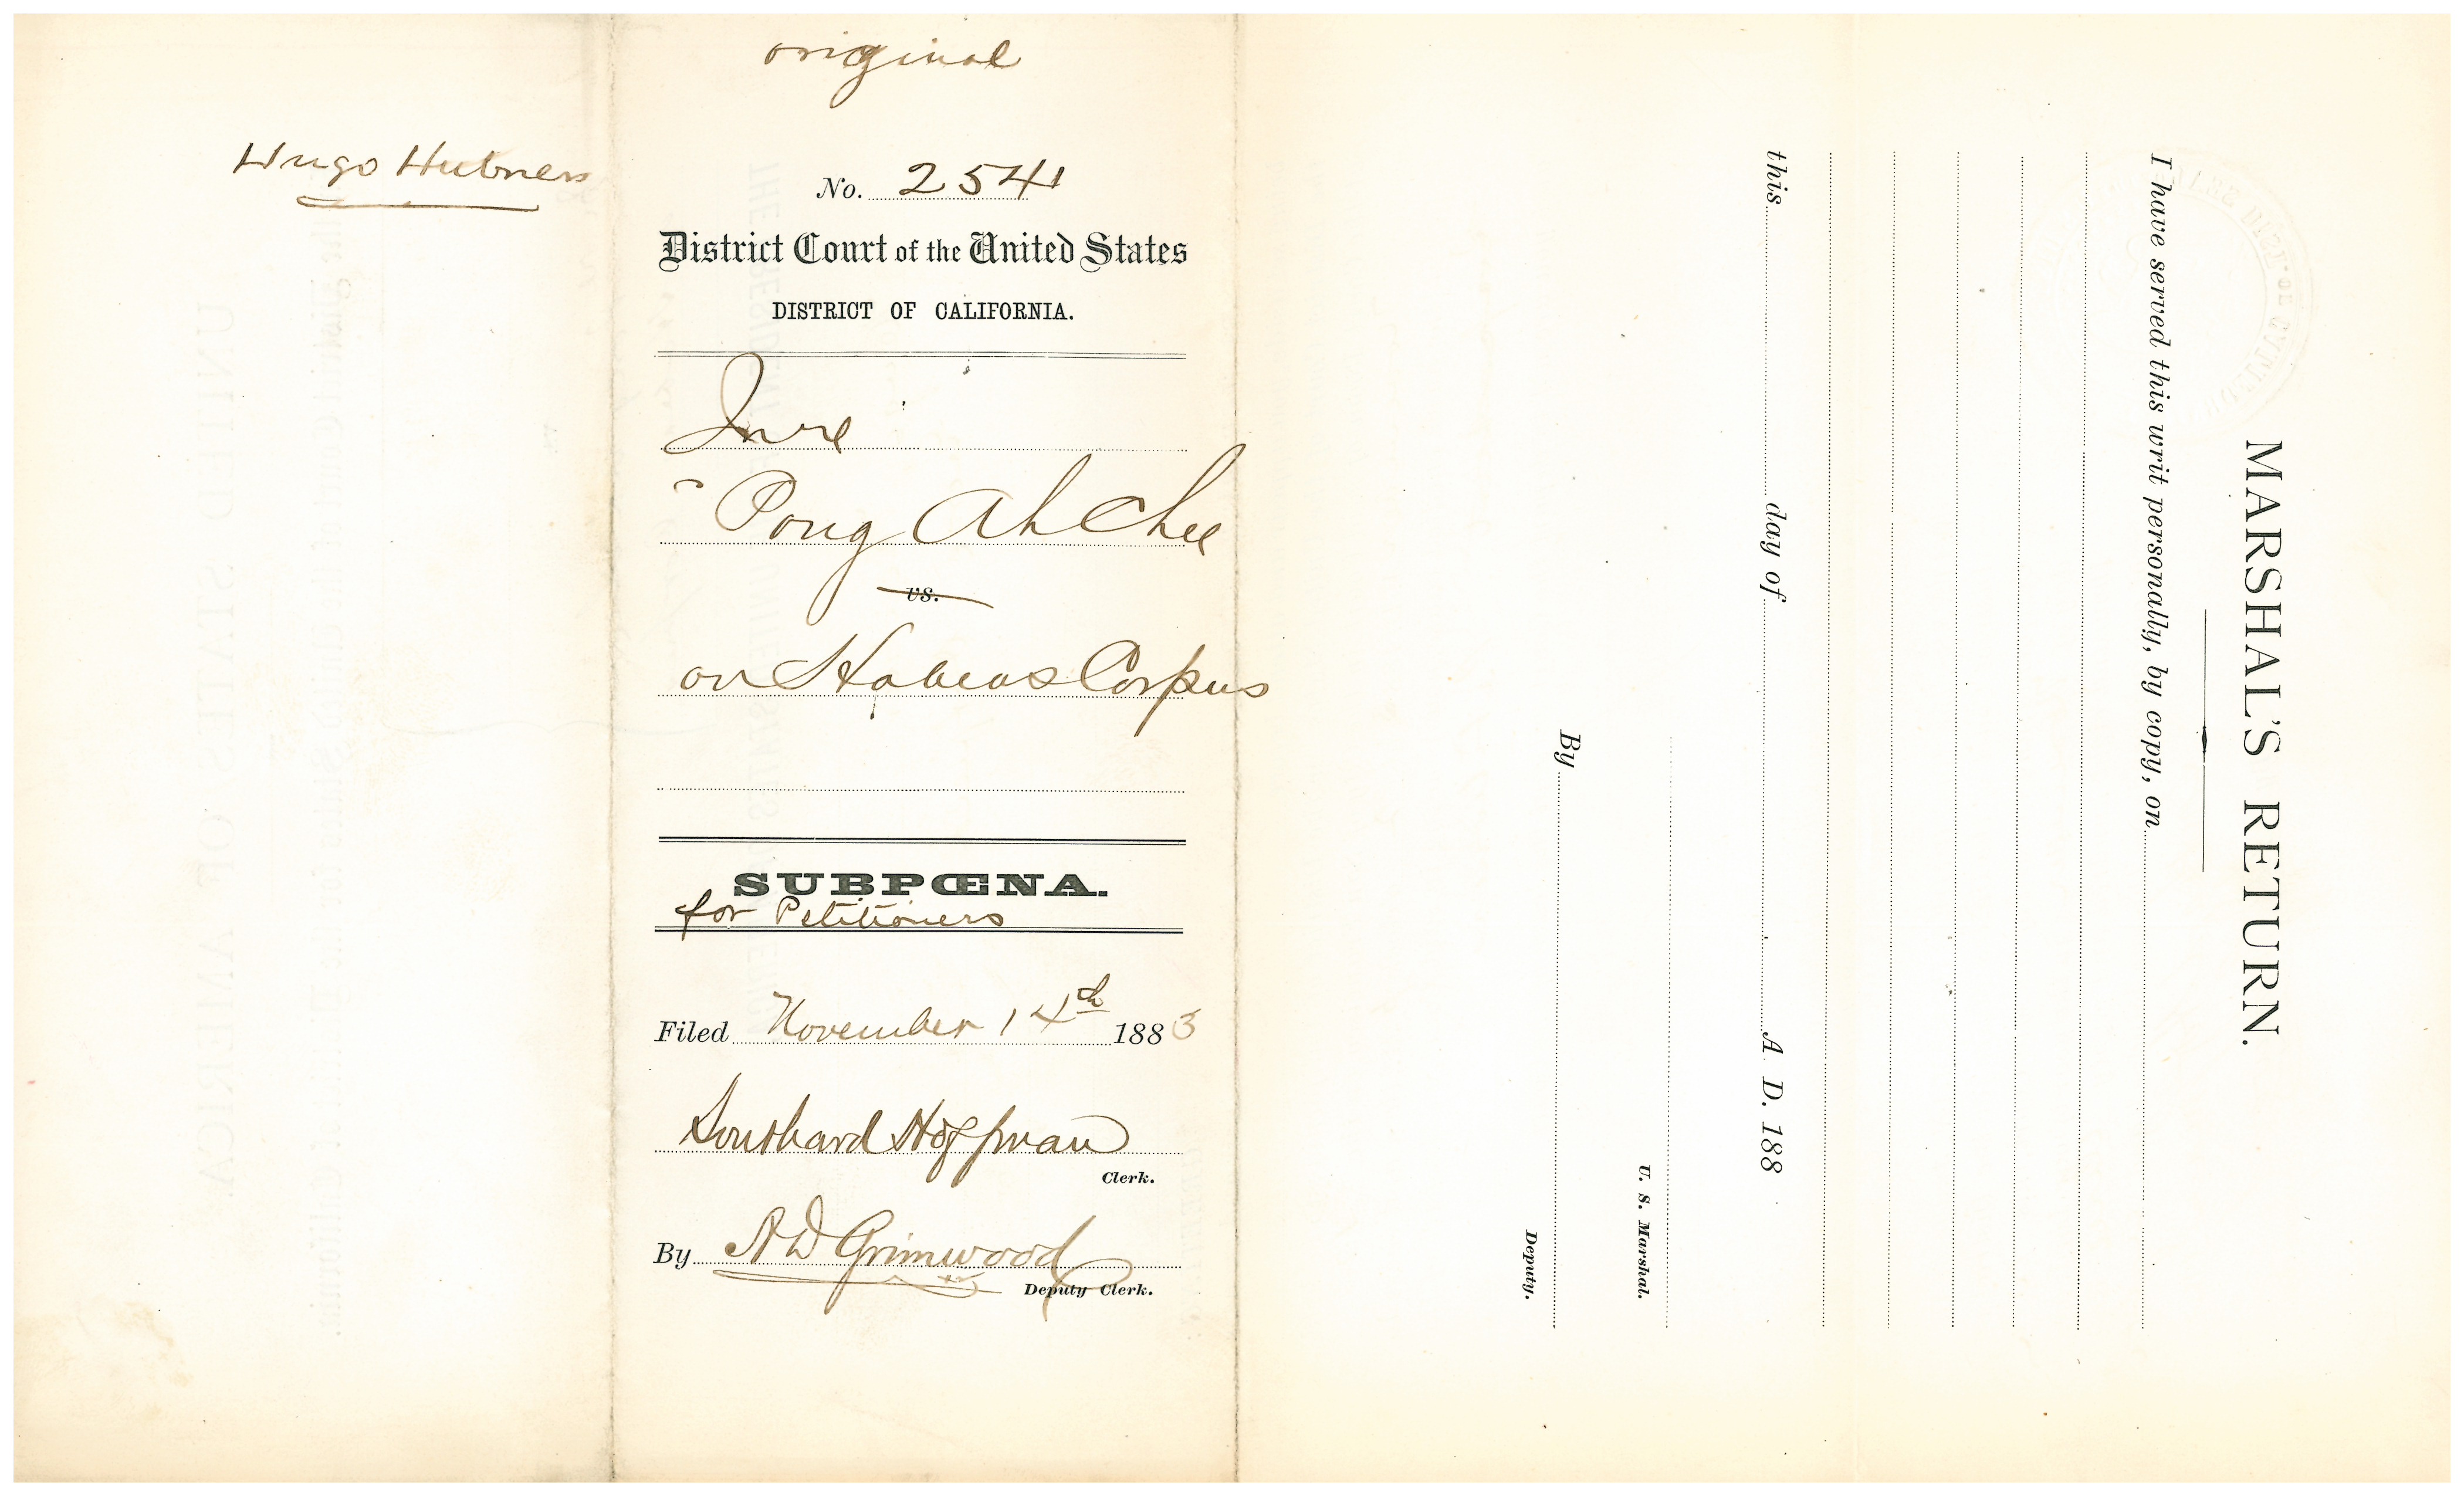 Hugo Hubners
original
No. 2541
District Court of the United States
DISTRICT OF CALIFORNIA.
In re
Pong Ah Chee
vs.
on Habeas Corpus
SUBPŒNA.
for Petitioners
Filed November 14th 1883
Southard Hoffman
Clerk.
By A D Grimwood
Deputy Clerk.
MARSHAL'S RETURN.
I have served this writ personally, by copy, on
this day of A D. 188
U. S. Marshal.
By
Deputy.